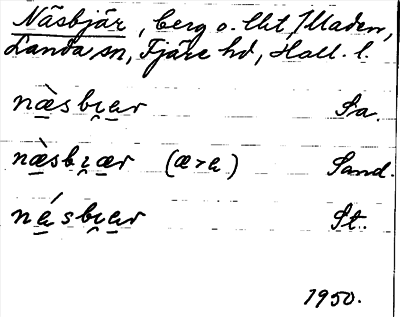 Näsbjär, berg o. Ut,/Uladen,
Landa sn, Fjäre hd, Hall. l.
næ̀sbi̯ær Sa.
næ̀sbi̯ær (æ>a) Sand.
násbi̯ar St.
1950.